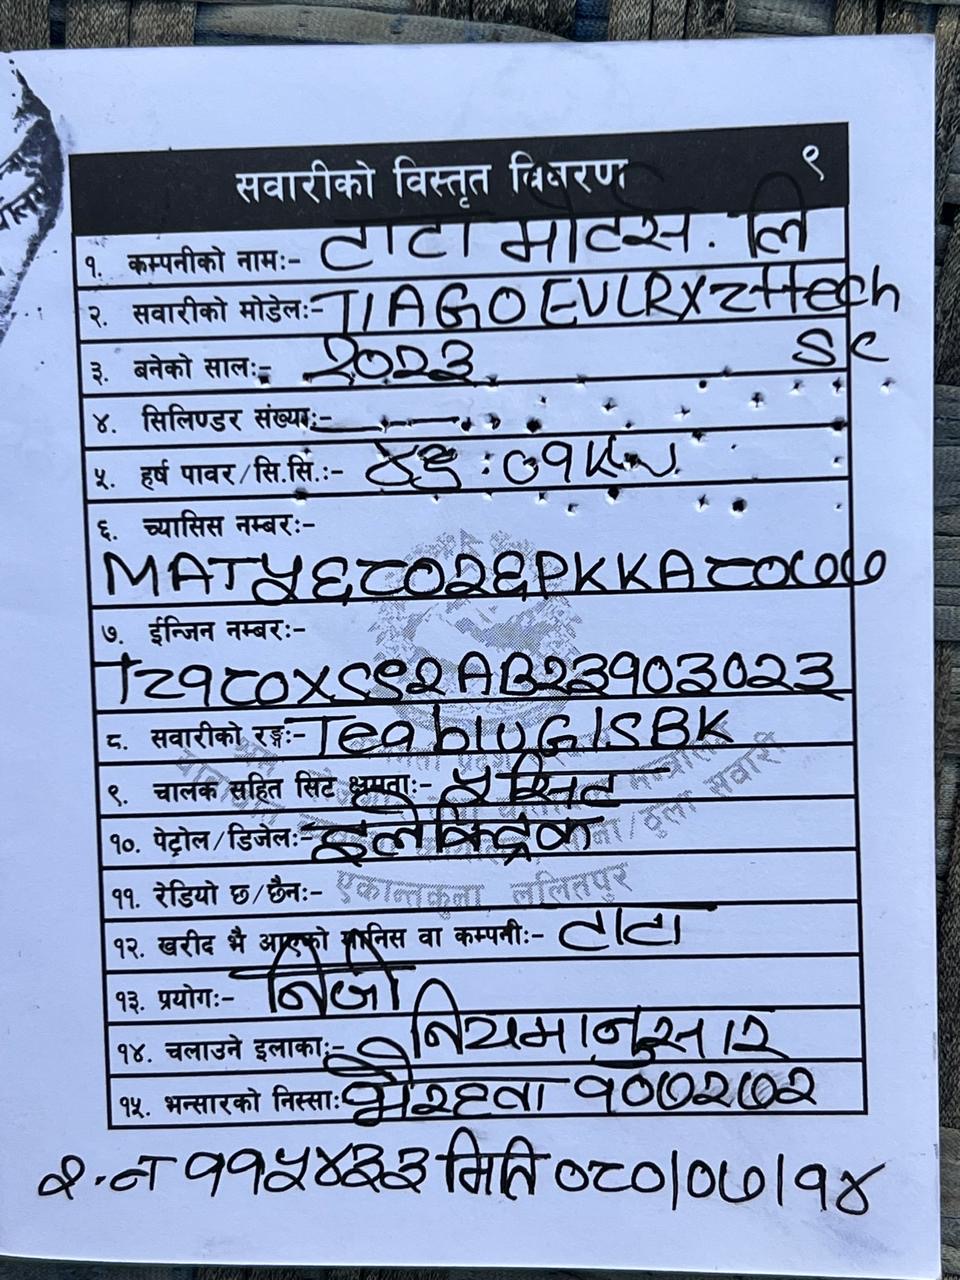 सवारीको विस्तृत विवरण ९
१. कम्पनीको नाम:- टाटा मोटर्स. लि
२. सवारीको मोडेल:- TIAGO EV LR XZ+Tech
३. बनेको साल:- २०२३
४. सिलिण्डर संख्या:-
५. हर्ष पावर/सि.सि.:- ४६:०१ KW
६. च्यासिस नम्बर:-
MAT५६८०२६PKKA८०७७७
७. ईन्जिन नम्बर:-
TZ१८०XS९२AB२३१०३०२३
८. सवारीको रङ्ग:- Tea blUGISBK
९. चालक सहित सिट क्षमता:- ५ सिट
१०. पेट्रोल/डिजेल:- इलेक्ट्रिक
११. रेडियो छ/छैन:-
१२. खरीद भै आएको मानिस वा कम्पनी:- टाटा
१३. प्रयोग:- निजी
१४. चलाउने इलाका:- नियमानुसार
१५. भन्सारको निस्सा: भैरहवा १०७२७२
एकान्तकुना ललितपुर
र.न ११५४३३ मिति ०८०/०७/१४